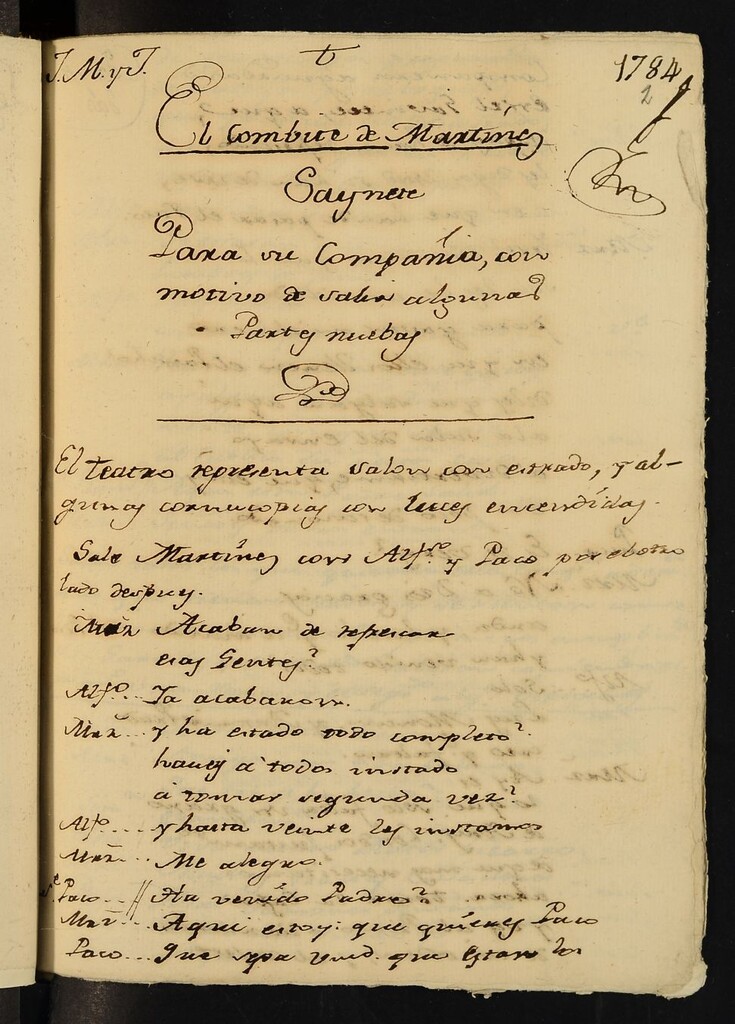 J. M. y J.
1784
2
El Combite de Martinez
Saynete
Para su Compañia, con
motivo de salir algunas
Partes nuebas
El teatro representa salon con estrado, y al-
gunas cornucopias con luces encendidas.
Sale Martinez con Alfso. y Paco por el otro
lado despues.
Mrz Acaban de refrescar
esas Gentes?
Alfo.. Ya acabaron.
Mrz... y ha estado todo completo?
haveis a todos instado
á tomar segunda vez?
Alfo.... y hasta veinte les instamos
Mrz... Me alegro.
Paco.. // Ha venido Padre?
Mrz... Aqui estoy: que quieres Paco
Paco... Que sepa Vmd. que estan los